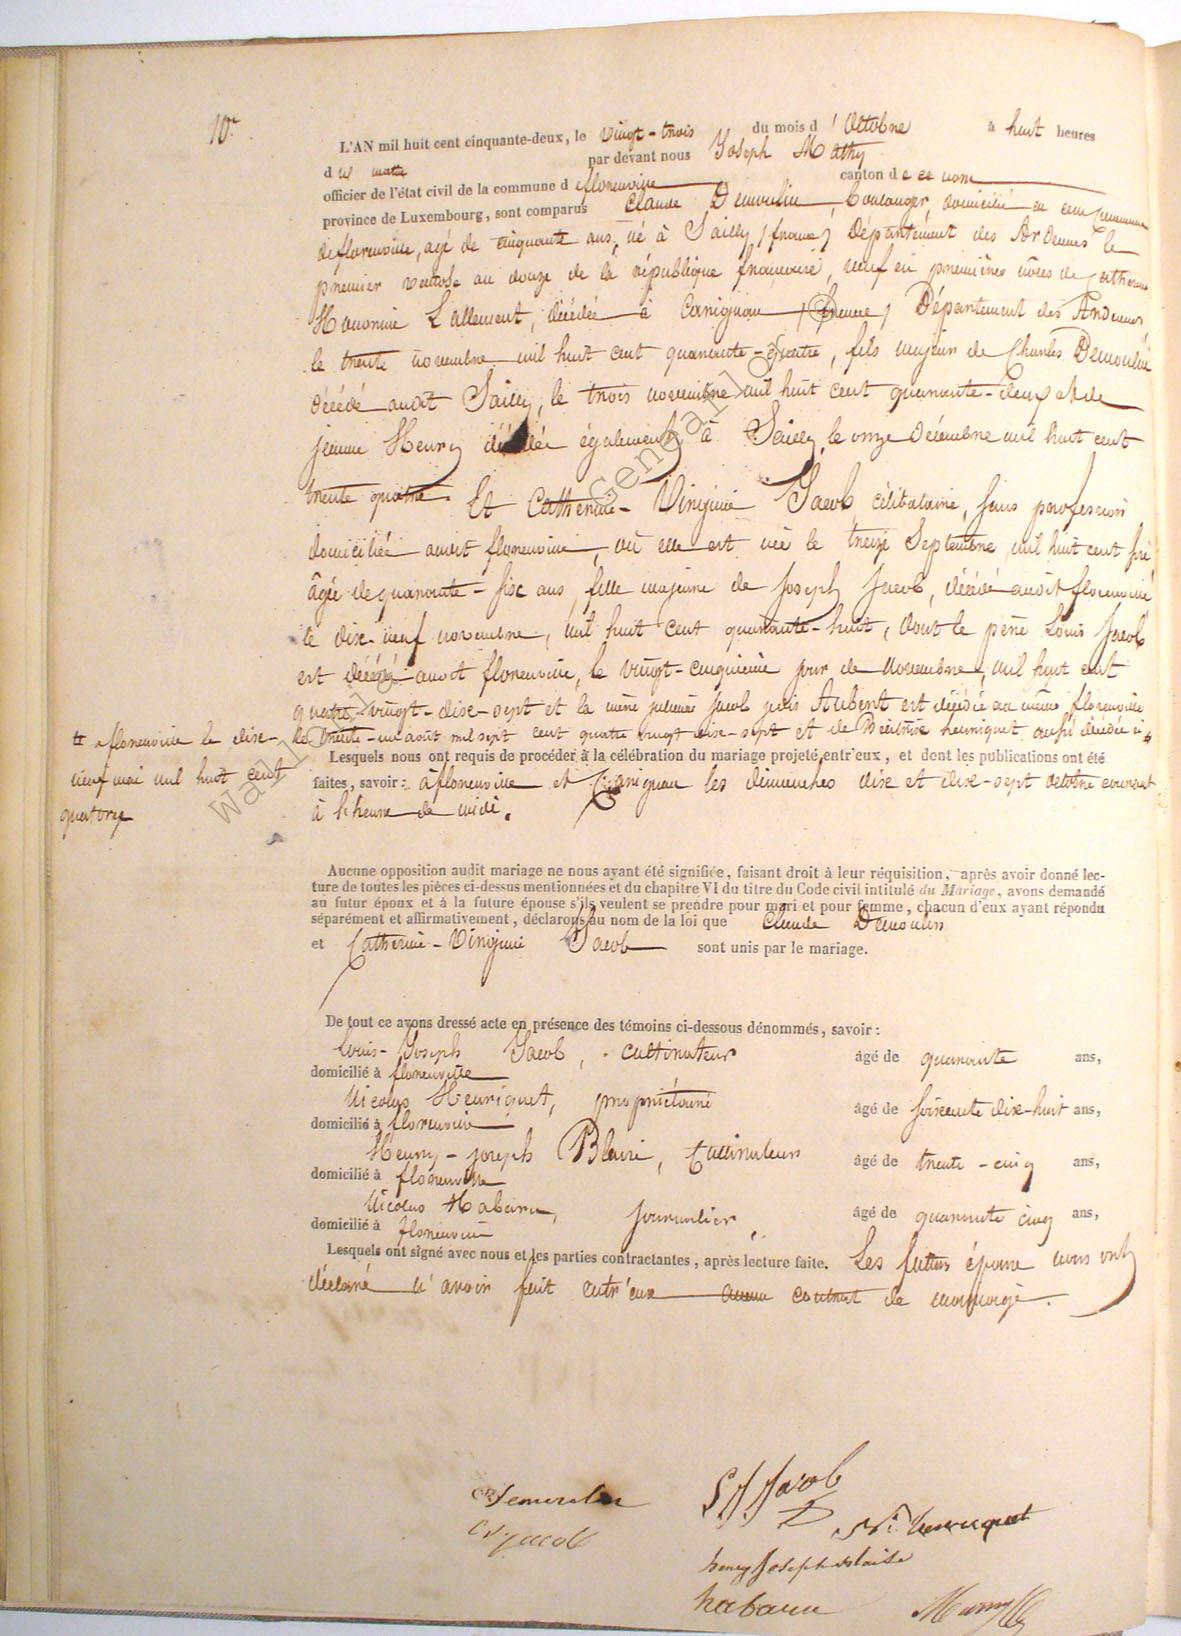 10e
L'AN mil huit cent cinquante-deux, le vingt-trois du mois d'Octobre à huit heures
d u matin par devant nous Joseph Mathy
officier de l'état civil de la commune d e florenville canton d e ce nom
province de Luxembourg, sont comparus Claude Demoulin, boulanger, domicilié en cette Commune
de florenville, agé de cinquante ans, né à Sailly (france) Département des Ardennes le
premier ventose an douze de la république française, veuf en premières nôces de Catherine
Lallement, décédée à Carignan Département des Ardennes
le trente novembre mil huit cent quarante-quatre, fils majeur de Charles Demoulin
décédé audit Sailly, le trois novembre mil huit cent quarante-deux et de
jeanne Henry décédée également à Sailly le onze Décembre mil huit cent
trente quatre. Et Catherine-Virginie Jacob célibataire, sans profession
domiciliée audit florenville, où elle est née le treize Septembre mil huit cent six
âgée de quarante-six ans, fille majeure de Joseph Jacob, décédé audit florenville
le dix-neuf novembre, mil huit cent quarante-huit, dont le père Louis Jacob
est décédé audit florenville, le vingt-cinquième jour de novembre, mil sept cent
quatre-vingt-dix-sept et la mère Jacob née Aubert est décédée au même florenville
le trente-un août mil sept cent quatre vingt dix-sept et de Béatrix henriquet aussi décédée
à florenville le dix-
neuf mai mil huit cent
quatorze
Lesquels nous ont requis de procéder à la célébration du mariage projeté entr'eux, et dont les publications ont été
faites, savoir: à florenville et Carignan les dimanches dix et dix-sept octobre courant
à l'heure de midi.
Aucune opposition audit mariage ne nous ayant été signifiée, faisant droit à leur réquisition, après avoir donné lec-
ture de toutes les pièces ci-dessus mentionnées et du chapitre VI du titre du Code civil intitulé du Mariage, avons demandé
au futur époux et à la future épouse s'ils veulent se prendre pour mari et pour femme, chacun d'eux ayant répondu
séparément et affirmativement, déclarons au nom de la loi que Claude Demoulin
et Catherine-Virginie Jacob sont unis par le mariage.
De tout ce avons dressé acte en présence des témoins ci-dessous dénommés, savoir:
Louis-Joseph Jacob, cultivateur âgé de quarante ans,
domicilié à florenville
Nicolas Henriquet, propriétaire âgé de soixante dix-huit ans,
domicilié à florenville
Henry-joseph Blaise, Cultivateur âgé de trente-cinq ans,
domicilié à florenville
Nicolas Habaru, journalier, âgé de quarante cinq ans,
domicilié à florenville
Lesquels ont signé avec nous et les parties contractantes, après lecture faite. Les futurs époux nous ont
déclaré n'avoir fait entr'eux aucun contrat de mariage.
Demoulin
L J Jacob
CV jacob
N. henriquet
henry Joseph blaise
habaru
Wallonia Genealogy